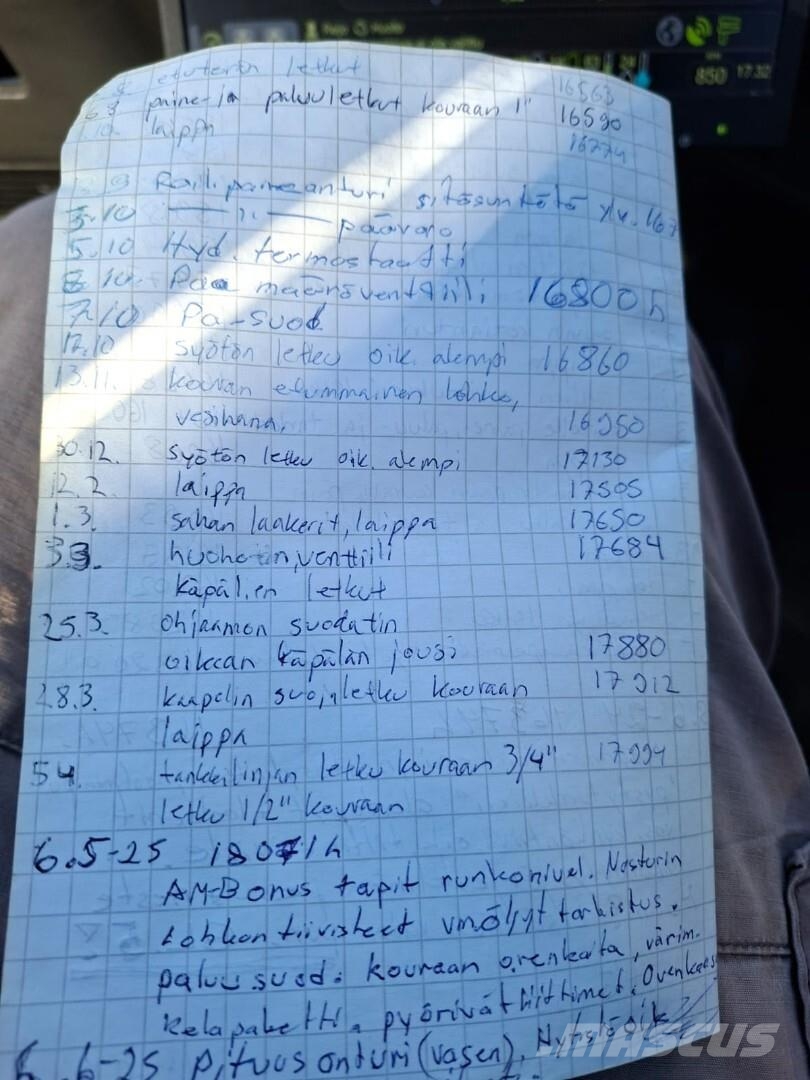 850 17:32
etuterän letkut 16563
paine- ja paluuletkut kouraan 1" 16590
laippa 16774
Raili paineanturi sitösuntötö
5.10 —— ,, —— päävano
5.10 Hyd. termostaatti
8.10. Pää määröventtiili 16800 h
7.10 Pa-suod.
12.10 syötön letku oik. alempi 16860
13.11. kouran etummainen lohko,
vesihana, 16950
30.12. syötön letku oik. alempi 17130
12.2. laippa 17505
1.3. sahan laakerit, laippa 17650
3.3. huohotin, venttiili 17684
käpälien letkut
25.3. ohjaamon suodatin
oikean käpälän jousi 17880
28.3. kaapelin suojaletku kouraan 17912
laippa
5.4. tankkilinjan letku kouraan 3/4" 17994
letku 1/2" kouraan
6.5-25 18071h
AM-Bonus tapit runkonivel. Nosturin
Lohkon tiivisteet vm.öljyt tarkistus.
paluusuod. kouraan orenkaita, värim.
Kelapaketti. pyörivät liittimet. Ovenkaasu
6-25 Pituus anturi (vasen).
MASCUS